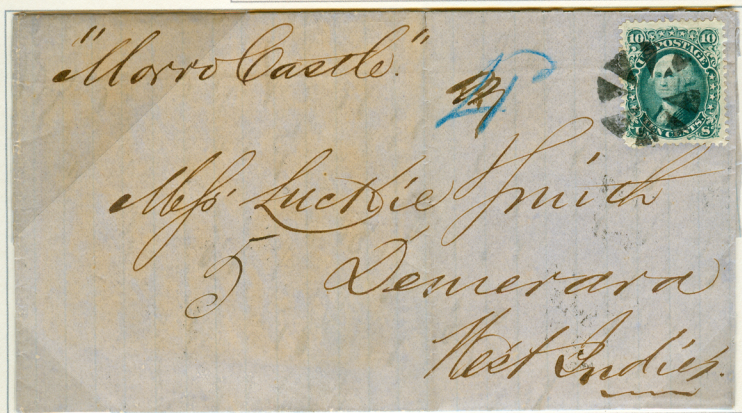 "Morro Castle."
10 U.S. POSTAGE 10
TEN CENTS
4
Mess Luckie Smith
5 Demerara
West Indies.